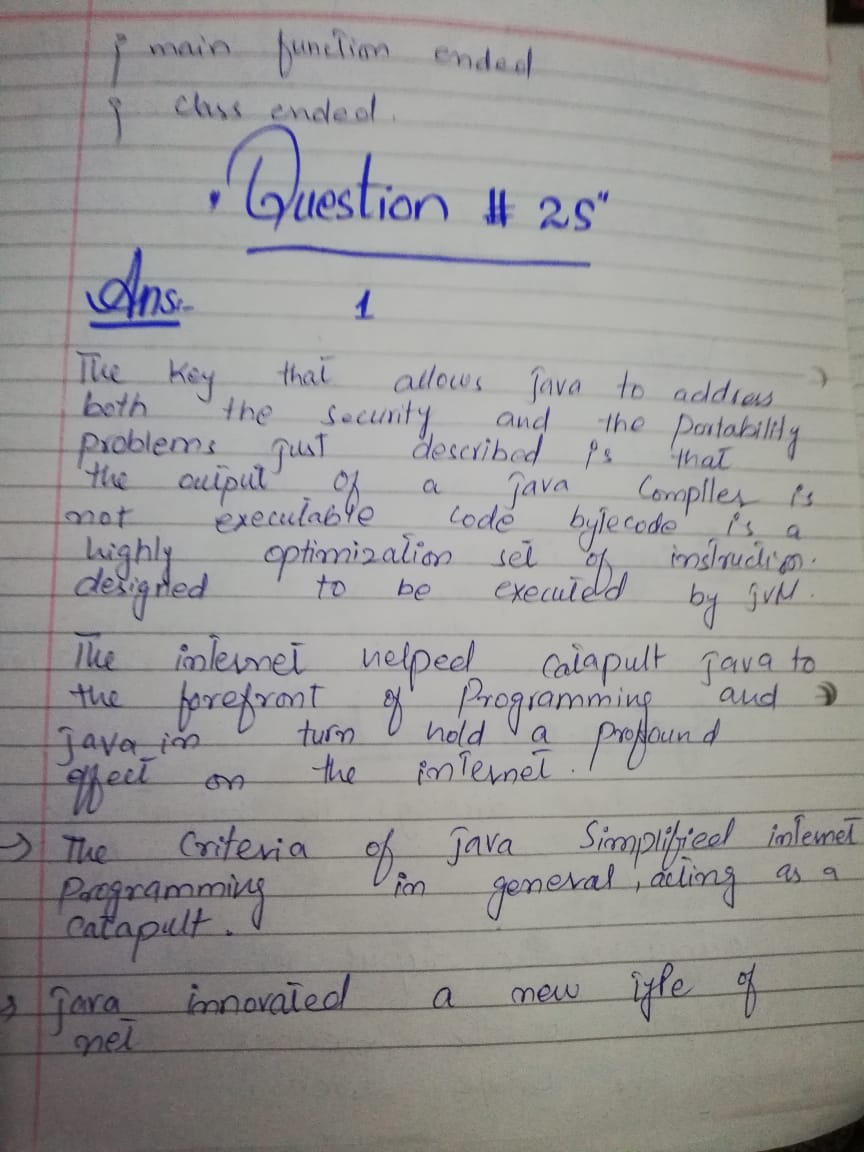 } main function ended
} class ended.
"Question # 2S"
Ans:- 1
The key that allows java to address
both the security and the Portability
problems just described is that
the output of a java Compiler is
not executable code bytecode is a
highly optimization set of instruction.
designed to be executed by JVM.
The internet helped catapult java to
the forefront of Programming and
java in turn hold a profound
effect on the internet.
→ The Criteria of java Simplified internet
Programming in general, acting as a
catapult.
→ java innovated a new type of
net